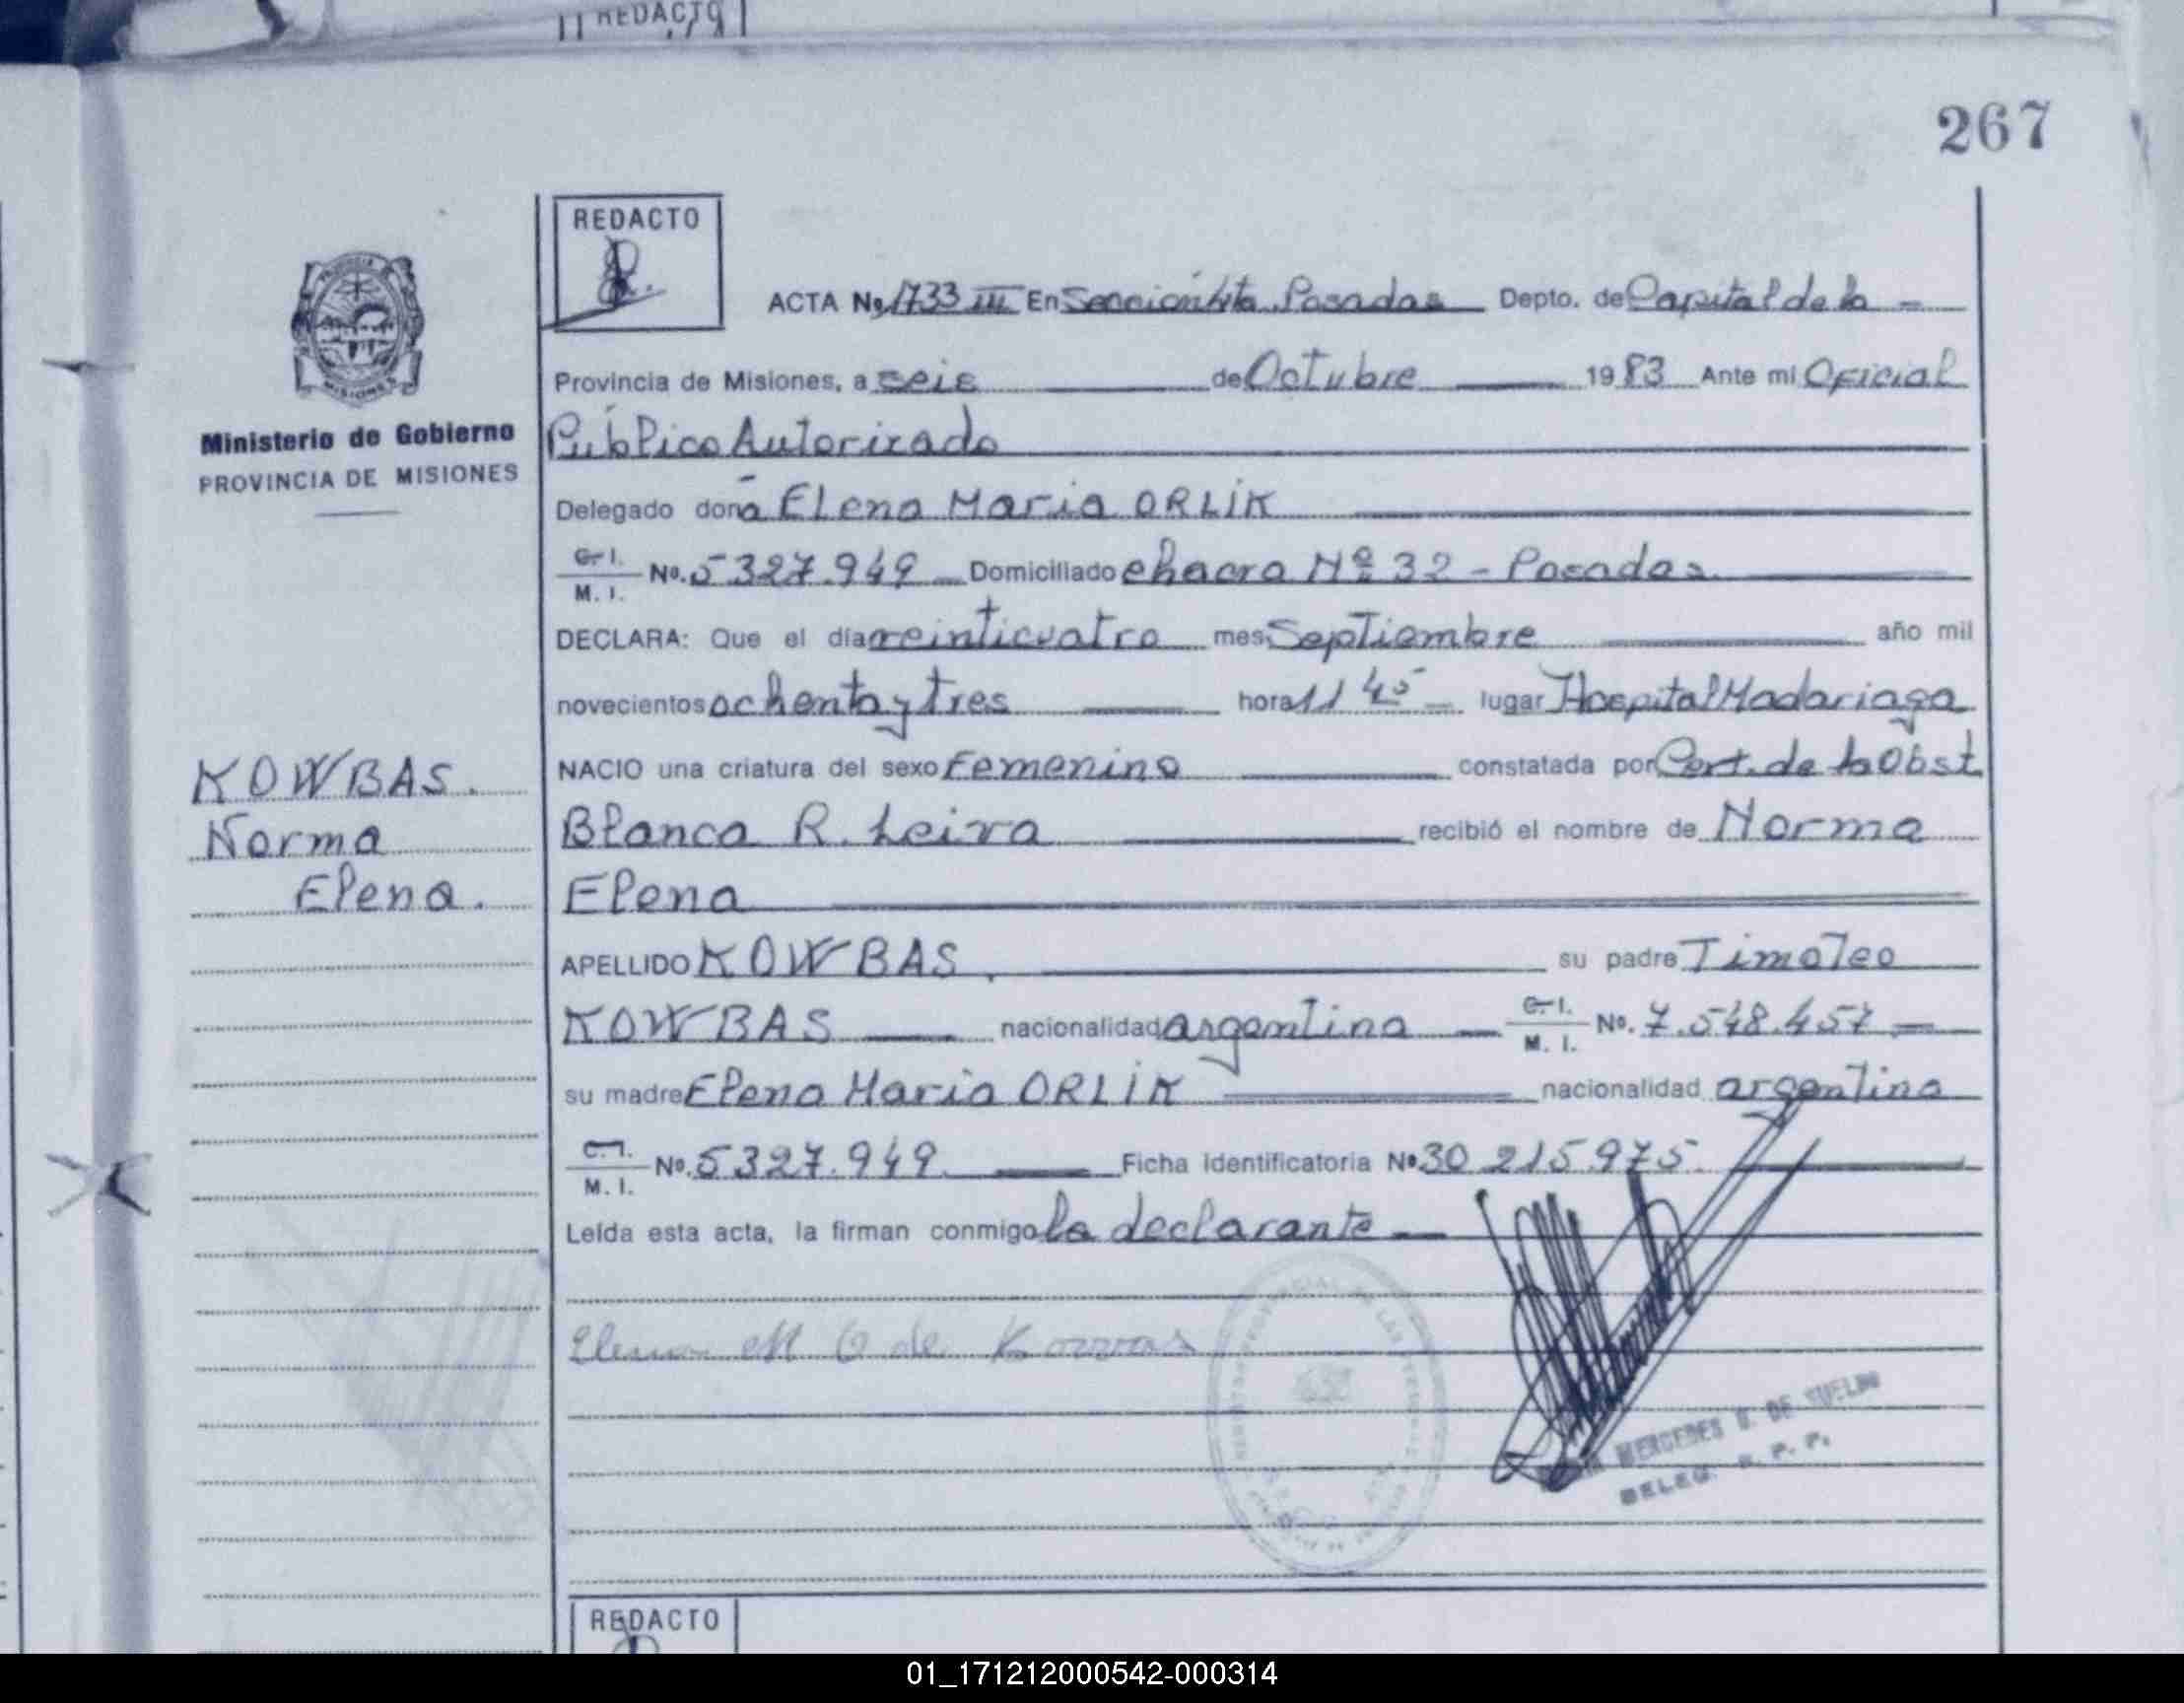 REDACTO
267
REDACTO
ACTA No. 1733 III En Sección 4ta. Posadas Depto. de Capital de la
Provincia de Misiones, a seis de Octubre 1983 Ante mi Oficial
Público Autorizado
Ministerio de Gobierno
PROVINCIA DE MISIONES
Delegado doña Elena Maria ORLIK
C. I.
M. I. No. 5327.949 Domiciliado chacra Nº 32 - Posadas
DECLARA: Que el día veinticuatro mes Septiembre año mil
novecientos ochenta y tres hora 11 45 lugar Hospital Madariaga
NACIO una criatura del sexo Femenino constatada por Cert. de la Obst
Blanca R. Leiva recibió el nombre de Norma
Elena
KOWBAS.
Norma
Elena.
APELLIDO KOWBAS. su padre Timoteo
KOWBAS nacionalidad argentina C. I.
M. I. No. 7.548.457
su madre Elena Maria ORLIK nacionalidad argentina
C. I.
M. I. No. 5327.949 Ficha identificatoria No 30 215.975.
Leída esta acta, la firman conmigo la declarante
Elena M O de Kowbas
MERCEDES G. DE SUELDO
DELEG. R. P. P.
REDACTO
01_171212000542-000314